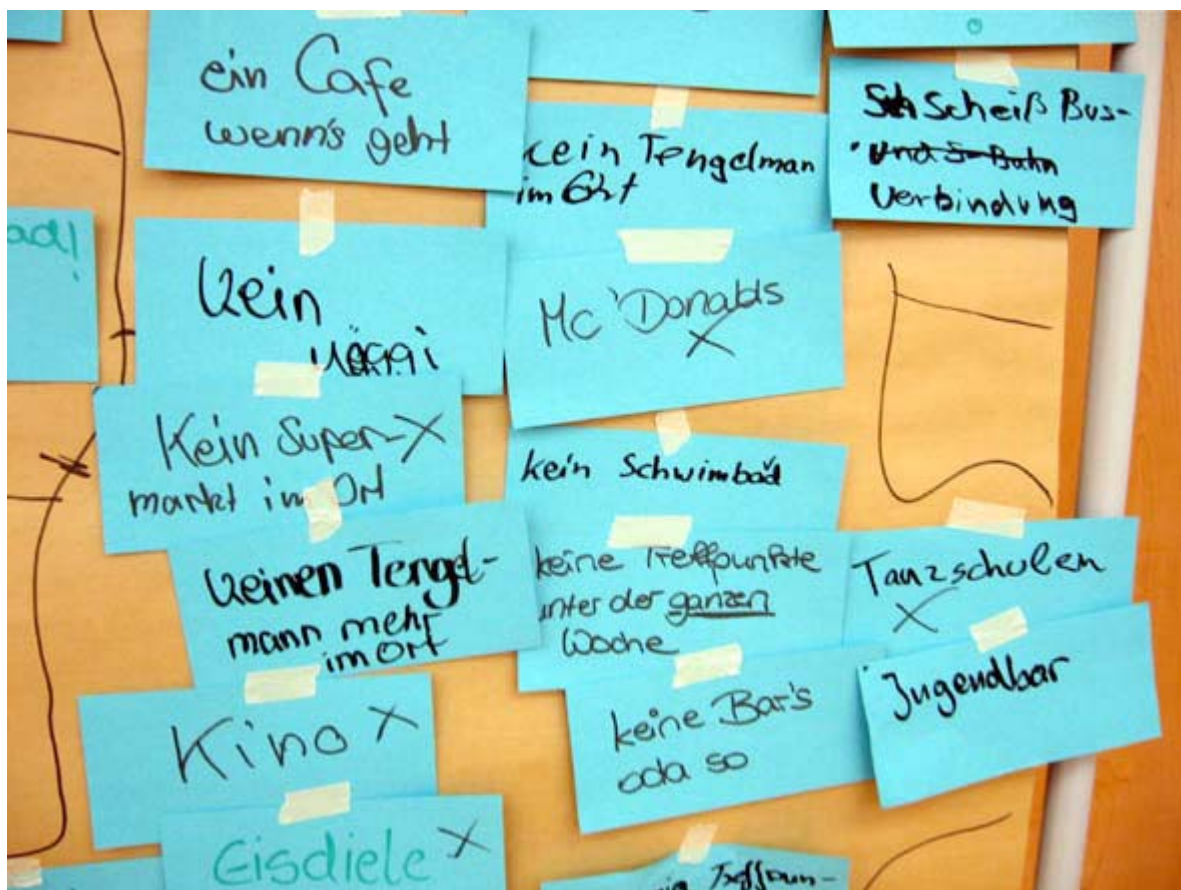 ein Cafe
wenn's geht
kein Tengelman
im Ort
Sch Scheiß Bus-
und S-Bahn
Verbindung
ad!
kein
Mäggi
Mc'Donalds
X
Kein Super-X
markt im Ort
kein Schwimbad
keinen Tengel-
mann mehr
im Ort
keine Treffpunkte
unter der ganzen
Woche
Tanzschulen
X
Jugendbar
keine Bar's
oda so
Kino X
Eisdiele X
Treffpun-